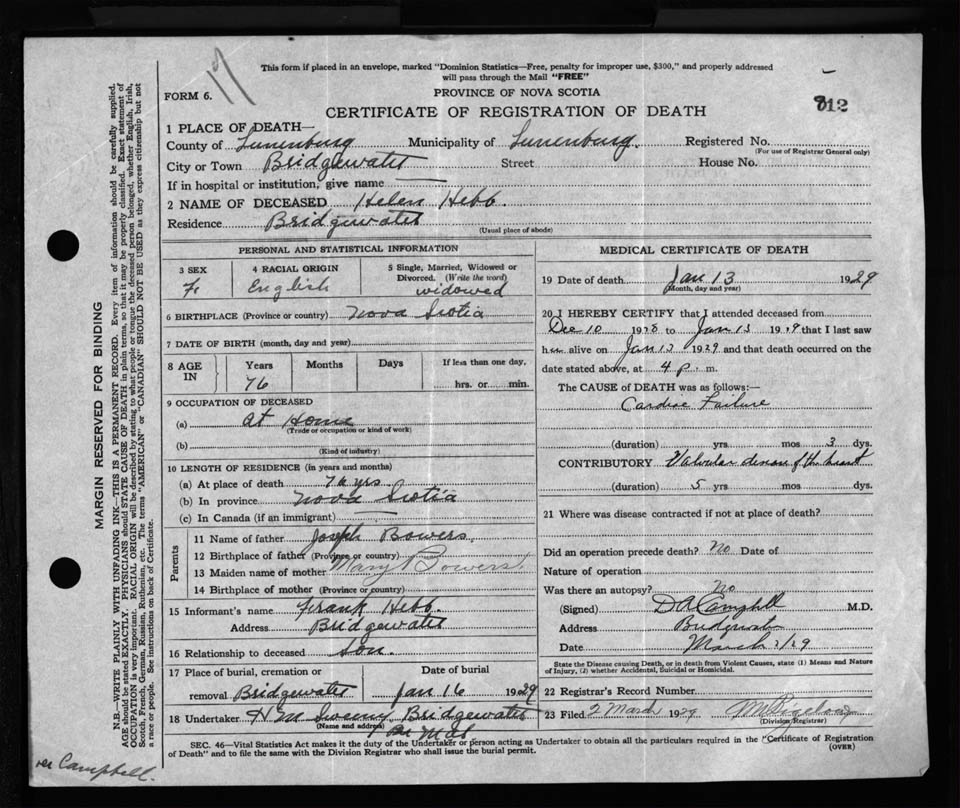 17
This form if placed in an envelope, marked "Dominion Statistics—Free, penalty for improper use, $300," and properly addressed
will pass through the Mail "FREE"
FORM 6.
PROVINCE OF NOVA SCOTIA
812
CERTIFICATE OF REGISTRATION OF DEATH
1 PLACE OF DEATH—
County of Lunenburg Municipality of Lunenburg. Registered No.
(For use of Registrar General only)
City or Town Bridgewater Street House No.
If in hospital or institution, give name
2 NAME OF DECEASED Helen Hebb.
Residence Bridgewater
(Usual place of abode)
PERSONAL AND STATISTICAL INFORMATION
3 SEX 4 RACIAL ORIGIN 5 Single, Married, Widowed or
Divorced. (Write the word)
F. English widowed
6 BIRTHPLACE (Province or country) Nova Scotia
7 DATE OF BIRTH (month, day and year)
8 AGE IN Years Months Days If less than one day,
76 hrs. or min.
9 OCCUPATION OF DECEASED
(a) at Home
(Trade or occupation or kind of work)
(b)
(Kind of industry)
10 LENGTH OF RESIDENCE (in years and months)
(a) At place of death 76 yrs.
(b) In province Nova Scotia
(c) In Canada (if an immigrant)
Parents
11 Name of father Joseph Bowers.
12 Birthplace of father (Province or country)
13 Maiden name of mother Mary Bowers
14 Birthplace of mother (Province or country)
15 Informant's name Frank Hebb.
Address Bridgewater
16 Relationship to deceased Son.
17 Place of burial, cremation or Date of burial
removal Bridgewater Jan 16 1929
18 Undertaker H M Sweeny Bridgewater
MEDICAL CERTIFICATE OF DEATH
19 Date of death Jan 13 1929
(Month, day and year)
20 I HEREBY CERTIFY that I attended deceased from
Dec 10 1928 to Jan 13 1929 that I last saw
her alive on Jan 13 1929 and that death occurred on the
date stated above, at 4 p. m.
The CAUSE of DEATH was as follows:—
Cardiac Failure
(duration) yrs mos 3 dys.
CONTRIBUTORY Valvular disease of the heart
(duration) 5 yrs mos dys.
21 Where was disease contracted if not at place of death?
Did an operation precede death? No Date of
Nature of operation
Was there an autopsy? No
(Signed) D A Campbell M.D.
Address Bridgewater
Date March 2/29
State the Disease causing Death, or in death from Violent Causes, state (1) Means and Nature
of Injury, (2) whether Accidental, Suicidal or Homicidal.
22 Registrar's Record Number
23 Filed 2 March 1929
(Division Registrar)
SEC. 46—Vital Statistics Act makes it the duty of the Undertaker or person acting as Undertaker to obtain all the particulars required in the "Certificate of Registration
of Death" and to file the same with the Division Registrar who shall issue the burial permit.
(OVER)
MARGIN RESERVED FOR BINDING
N.B.—WRITE PLAINLY WITH UNFADING INK—THIS IS A PERMANENT RECORD. Every item of information should be carefully supplied.
AGE should be stated EXACTLY. PHYSICIANS should STATE CAUSE OF DEATH in plain terms, so that it may be properly classified. Exact statement of
OCCUPATION is very important. RACIAL ORIGIN will be described by stating to what people or tongue the deceased person belonged, whether English, Irish,
Scotch, French, German, Russian, Ruthenian, etc. The terms "AMERICAN" or "CANADIAN" SHOULD NOT BE USED as they express citizenship but not
a race or people. See instructions on back of Certificate.
Campbell.